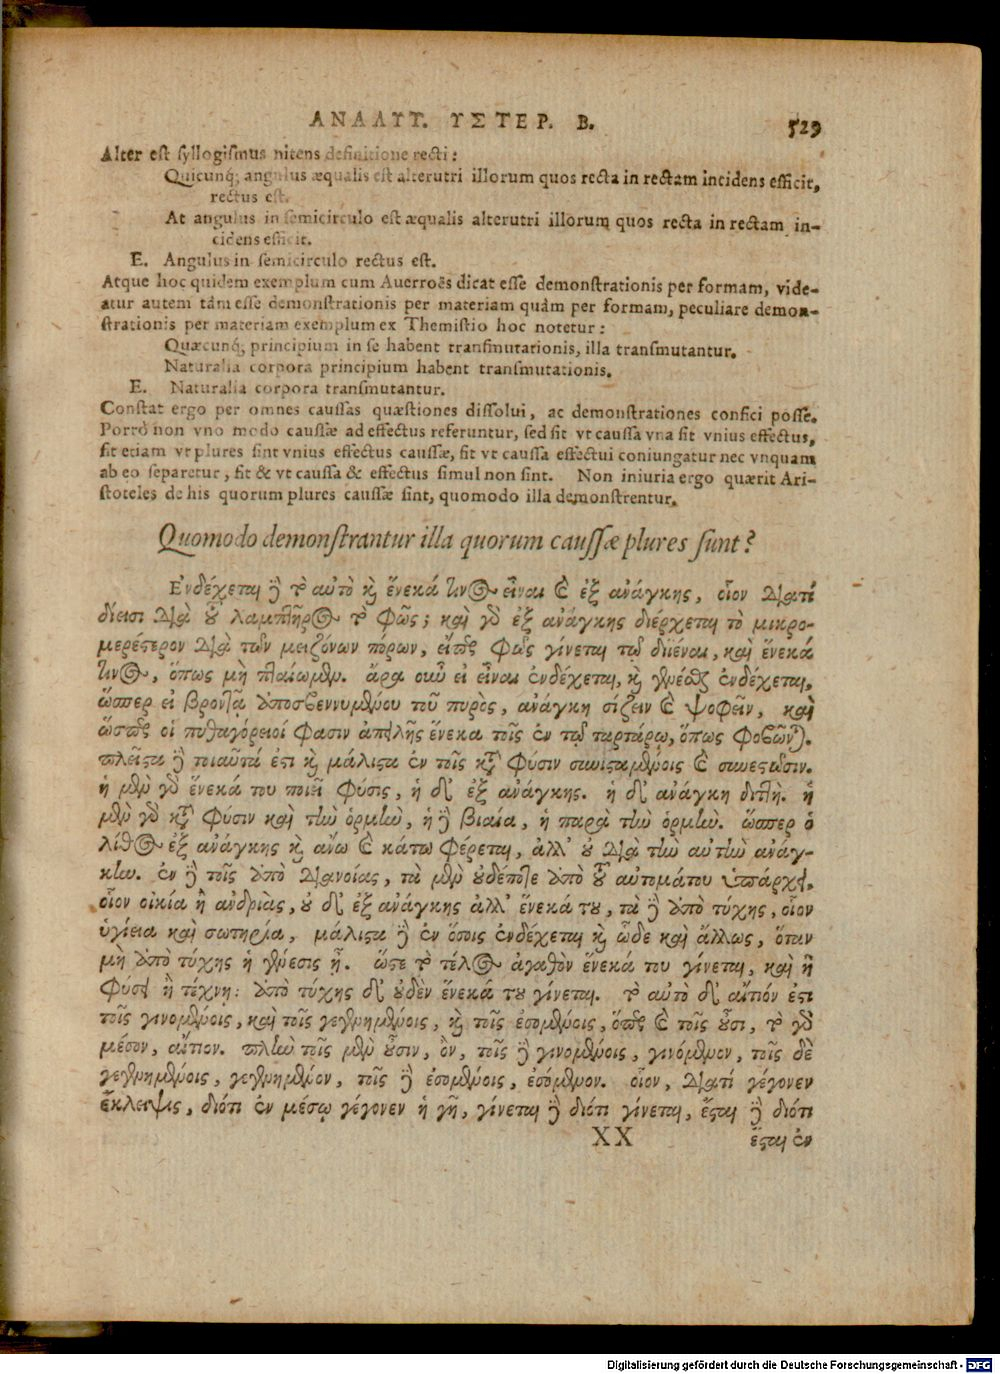 ΑΝΑΛΥΤ. ΥΣΤΕΡ. Β. 529
Alter est syllogismus nitens definitione recti:
Quicunq; angulus æqualis est alterutri illorum quos recta in rectam incidens efficit,
rectus est.
At angulus in semicirculo est æqualis alterutri illorum quos recta in rectam in-
cidens efficit.
E. Angulus in semicirculo rectus est.
Atque hoc quidem exemplum cum Auerroës dicat esse demonstrationis per formam, vide-
atur autem tàm esse demonstrationis per materiam quàm per formam, peculiare demon-
strationis per materiam exemplum ex Themistio hoc notetur:
Quæcunq; principium in se habent transmutationis, illa transmutantur.
Naturalia corpora principium habent transmutationis.
E. Naturalia corpora transmutantur.
Constat ergo per omnes caussas quæstiones dissolui, ac demonstrationes confici posse.
Porrò non vno modo caussæ ad effectus referuntur, sed fit vt caussa vna sit vnius effectus,
fit etiam vt plures sint vnius effectus caussæ, fit vt caussa effectui coniungatur nec vnquam
ab eo separetur, fit & vt caussa & effectus simul non sint. Non iniuria ergo quærit Ari-
stoteles de his quorum plures caussæ sint, quomodo illa demonstrentur.
Quomodo demonstrantur illa quorum caussæ plures sunt?
Ενδέχεται ἢ τὸ αὐτὸ κὶ ἕνεκά τινος εἶναι καὶ ἐξ ἀνάγκης, οἷον διατί
δίεισι διὰ τοῦ λαμπτῆρος τὸ φῶς; καὶ γὸ ἐξ ἀνάγκης διέρχεται τὸ μικρο-
μερέστερον διὰ τῶν μειζόνων πόρων, εἴπερ φῶς γίνεται τῷ διϊέναι, καὶ ἕνεκά
τινος, ὅπως μὴ πλαίωμεν. ἄρα οὖν εἰ εἶναι ἐνδέχεται, κὶ γενέσθαι ἐνδέχεται,
ὥσπερ εἰ βροντᾷ ἀποσβεννυμένου τοῦ πυρὸς, ἀνάγκη σίζειν καὶ ψοφεῖν, καὶ
ὥσπερ οἱ πυθαγόρειοί φασιν ἀπειλῆς ἕνεκα τοῖς ἐν τῷ ταρτάρῳ, ὅπως φοβῶνται.
πλεῖστα δὲ τοιαῦτά ἐστι κὶ μάλιστα ἐν τοῖς κατὰ φύσιν συνισταμένοις καὶ συνεστῶσιν.
ἡ μὲν γὸ ἕνεκά του ποιεῖ φύσις, ἡ δ' ἐξ ἀνάγκης. ἡ δ' ἀνάγκη διττή. ἡ
μὲν γὸ κατὰ φύσιν καὶ τὴν ὁρμὴν, ἡ δὲ βιαία, ἡ παρὰ τὴν ὁρμὴν. ὥσπερ ὁ
λίθος ἐξ ἀνάγκης κὶ ἄνω καὶ κάτω φέρεται, ἀλλ' οὐ διὰ τὴν αὐτὴν ἀνάγ-
κην. ἐν δὲ τοῖς ἀπὸ διανοίας, τὰ μὲν οὐδέποτε ἀπὸ τοῦ αὐτομάτου ὑπάρχει,
οἷον οἰκία ἢ ἀνδριὰς, οὐ δ' ἐξ ἀνάγκης ἀλλ' ἕνεκά του, τὰ δὲ ἀπὸ τύχης, οἷον
ὑγίεια καὶ σωτηρία, μάλιστα δὲ ἐν ὅσοις ἐνδέχεται κὶ ὧδε καὶ ἄλλως, ὅταν
μὴ ἀπὸ τύχης ἡ γένεσις ᾖ. ὥστε τὸ τέλος ἀγαθὸν ἕνεκά του γίνεται, καὶ ἢ
φύσει ἢ τέχνῃ: ἀπὸ τύχης δ' οὐδὲν ἕνεκά του γίνεται. τὸ αὐτὸ δ' αἴτιόν ἐστι
τοῖς γινομένοις, καὶ τοῖς γεγενημένοις, κὶ τοῖς ἐσομένοις, ὅπερ καὶ τοῖς οὖσι, τὸ γὸ
μέσον, αἴτιον. πλὴν τοῖς μὲν οὖσιν, ὂν, τοῖς δὲ γινομένοις, γινόμενον, τοῖς δὲ
γεγενημένοις, γεγενημένον, τοῖς δὲ ἐσομένοις, ἐσόμενον. οἷον, διατί γέγονεν
ἔκλειψις, διότι ἐν μέσῳ γέγονεν ἡ γῆ, γίνεται δὲ διότι γίνεται, ἔσται δὲ διότι
XX ἔσται ἐν
Digitalisierung gefördert durch die Deutsche Forschungsgemeinschaft - DFG